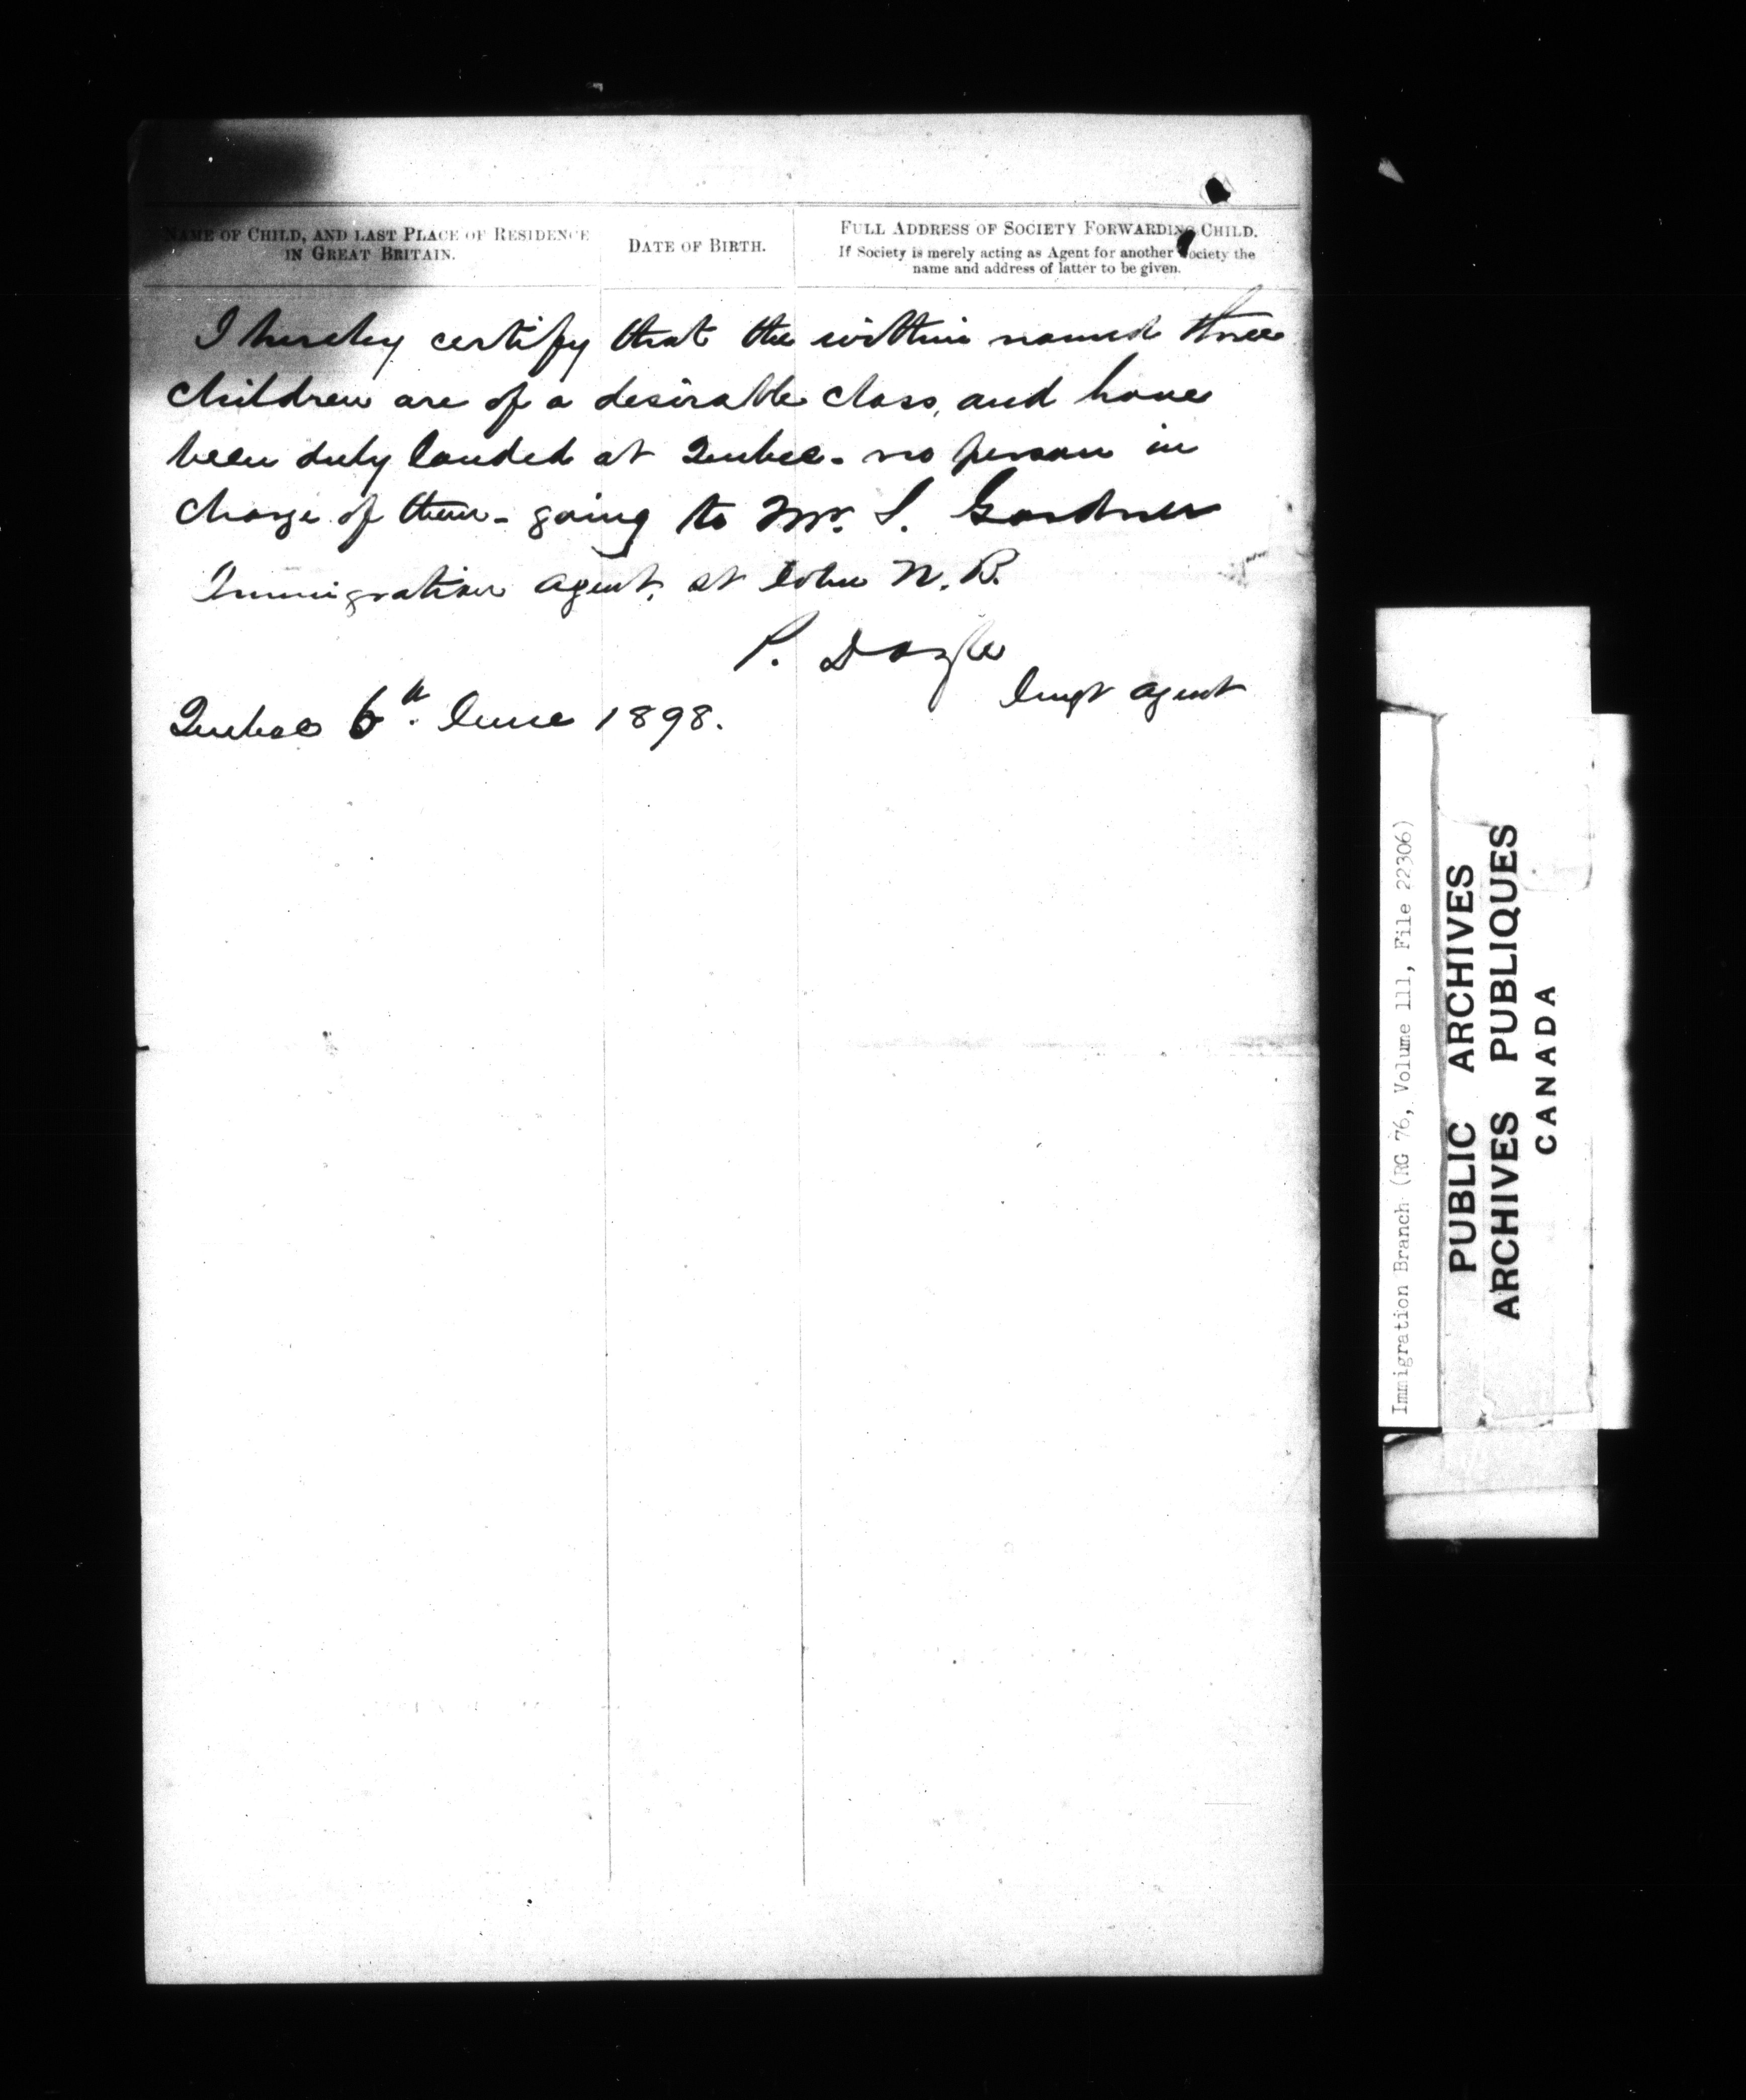 NAME OF CHILD, AND LAST PLACE OF RESIDENCE
IN GREAT BRITAIN.
DATE OF BIRTH.
FULL ADDRESS OF SOCIETY FORWARDING CHILD.
If Society is merely acting as Agent for another Society the
name and address of latter to be given.
I hereby certify that the within named three
children are of a desirable class, and have
been duly landed at Quebec - no person in
charge of them - going to Mr. S. Gardner
Immigration agent, St John N. B.
P. Doyle
Imgt agent
Quebec 6th June 1898.
Immigration Branch (RG 76, Volume 111, File 22306)
PUBLIC ARCHIVES
ARCHIVES PUBLIQUES
CANADA